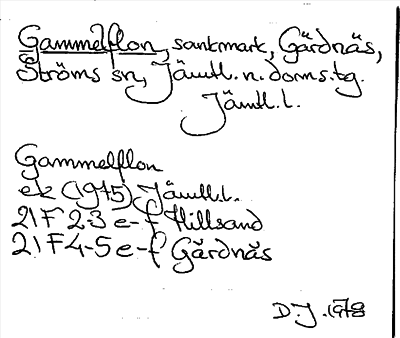 Gammelflon, sankmark, Gärdnäs,
Ströms sn, Jämtl. n. doms.tg.
Jämtl. l.
Gammelflon
ek (1975) Jämtl.l.
21 F 2-3 e-f Hillsand
21 F 4-5 e-f Gärdnäs
D.J. 1978